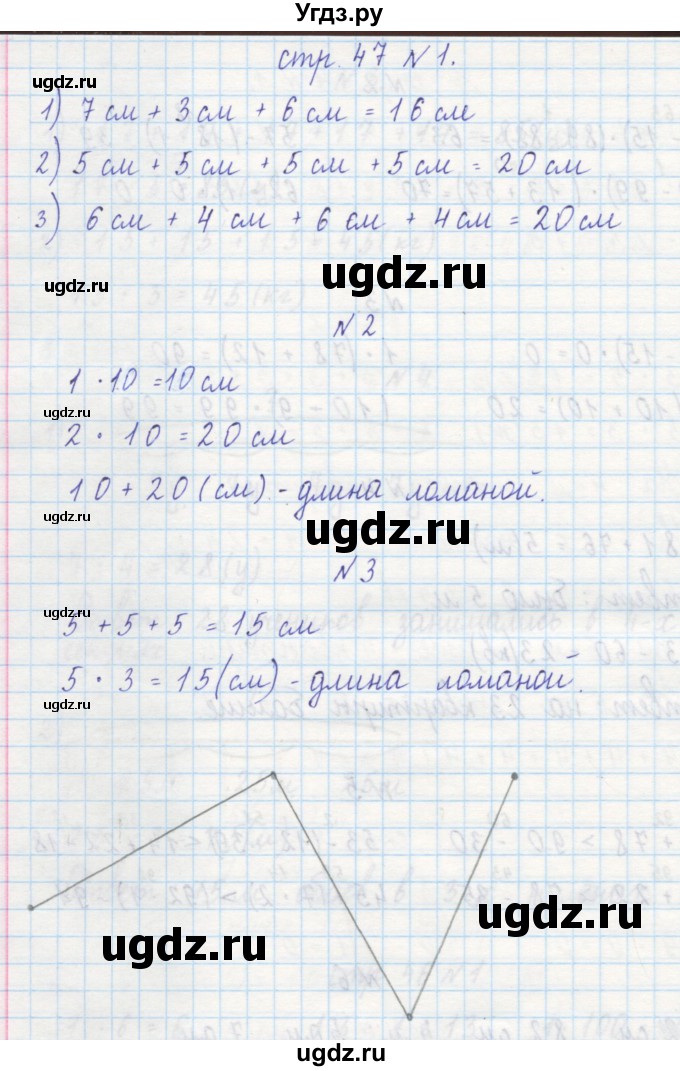 Угдз.ру
стр. 47 №1.
ugdz.ru
1) 7 см + 3 см + 6 см = 16 см
2) 5 см + 5 см + 5 см + 5 см = 20 см
ugdz.ru
3) 6 см + 4 см + 6 см + 4 см = 20 см
ugdz.ru
ugdz.ru
№2.
1 · 10 = 10 см
ugdz.ru
2 · 10 = 20 см
10 + 20 (см) - длина ломаной.
ugdz.ru
ugdz.ru
№3
ugdz.ru
5 + 5 + 5 = 15 см
5 · 3 = 15 (см) - длина ломаной.
ugdz.ru
ugdz.ru
ugdz.ru
ugdz.ru